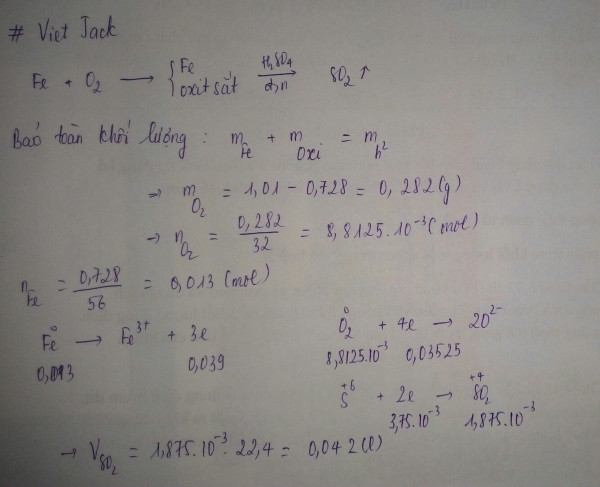 # Viet Jack
Fe + O₂ ⟶ { Fe / oxit sắt —(H₂SO₄ / đ,n)→ SO₂ ↑
Bảo toàn khối lượng : m_Fe + m_Oxi = m_h²
→ m_O₂ = 1,01 − 0,728 = 0,282 (g)
→ n_O₂ = 0,282/32 = 8,8125.10⁻³ (mol)
n_Fe = 0,728/56 = 0,013 (mol)
Fe⁰ → Fe³⁺ + 3e
0,013 0,039
O₂⁰ + 4e → 2O²⁻
8,8125.10⁻³ 0,03525
S⁺⁶ + 2e → SO₂⁺⁴
3,75.10⁻³ 1,875.10⁻³
→ V_SO₂ = 1,875.10⁻³. 22,4 = 0,042 (l)